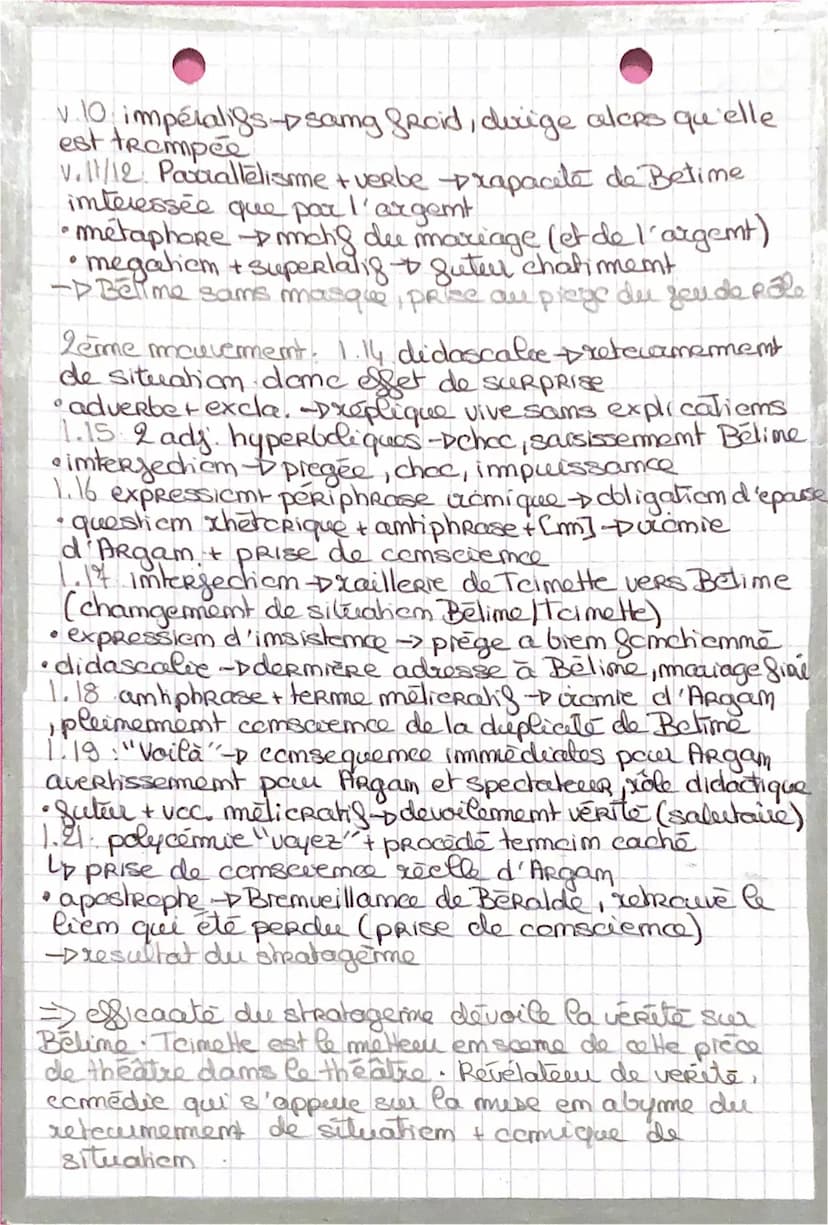 v.10 impératifs → sang froid, dirige alors qu'elle
est trompée
v.11/12 Parallélisme + verbe → rapacité de Béline
intéressée que par l'argent
• métaphore → mchf du mariage (et de l'argent)
• negation + superlatif → futur chatiment
→ Béline sans masque, prise au piège du jeu de rôle
2ème mouvement: l.14 didascalie → retournement
de situation donc effet de surprise
• adverbe + excla. → réplique vive sans explications
l.15 2 adj. hyperboliques → choc, saisissement Béline
• interjection → piegée, choc, impuissance
l.16 expression + périphrase ironique → obligation d'epouse
• question rhétorique + antiphrase + [m] → ironie
d'Argan + prise de conscience
l.17 interjection → raillerie de Toinette vers Béline
(changement de situation Béline/Toinette)
• expression d'insistence → piège a bien fonctionné
• didascalie → dernière adresse à Béline, mariage fini
l.18 antiphrase + terme mélioratif → ironie d'Argan
, pleinement conscience de la duplicité de Béline
l.19 : "Voilà" → consequence immédiates pour Argan
avertissement pour Argan et spectateur, rôle didactique
• futur + voc. mélioratif → devoilement vérité (salutaire)
l.21. polycémie "voyez" + procédé témoin caché
↳ prise de conscience réelle d'Argan
• apostrophe → Bienveillance de Béralde, retrouvé le
lien qui été perdu (prise de conscience)
→ resultat du stratagème
⇒ efficacité du stratageme dévoile la vérité sur
Béline. Toinette est le metteur en scene de cette pièce
de théâtre dans le théâtre. Révélateur de verité,
comédie qui s'appuie sur la mise en abyme du
retournement de situation + comique de
situation.